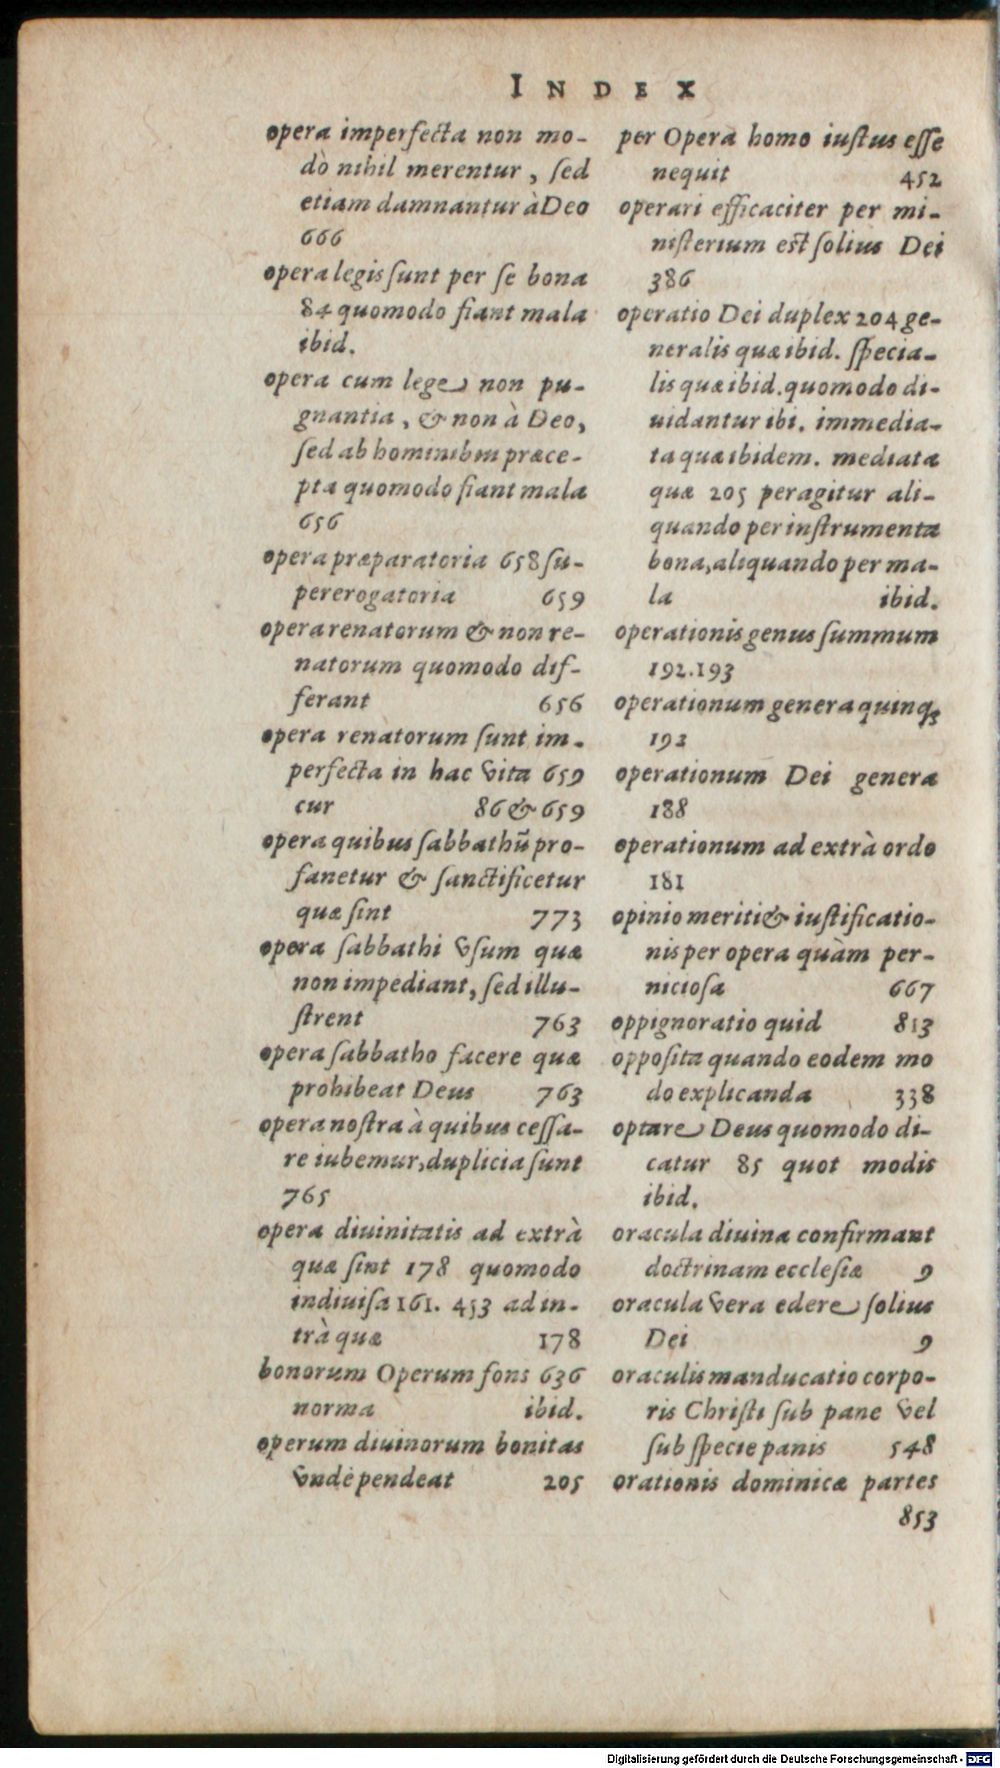 INDEX
opera imperfecta non mo-
dò nihil merentur, ſed
etiam damnantur à Deo
666
opera legis ſunt per ſe bona
84 quomodo fiant mala
ibid.
opera cum lege non pu-
gnantia, & non à Deo,
ſed ab hominibus præce-
pta quomodo fiant mala
656
opera præparatoria 658 ſu-
pererogatoria 659
opera renatorum & non re-
natorum quomodo dif-
ferant 656
opera renatorum ſunt im-
perfecta in hac vita 659
cur 86 & 659
opera quibus ſabbathũ pro-
fanetur & ſanctificetur
quæ ſint 773
opera ſabbathi vſum quæ
non impediant, ſed illu-
ſtrent 763
opera ſabbatho facere quæ
prohibeat Deus 763
opera noſtra à quibus ceſſa-
re iubemur, duplicia ſunt
765
opera diuinitatis ad extrà
quæ ſint 178 quomodo
indiuiſa 161. 453 ad in-
trà quæ 178
bonorum Operum fons 636
norma ibid.
operum diuinorum bonitas
vnde pendeat 205
per Opera homo iuſtus eſſe
nequit 452
operari efficaciter per mi-
niſterium eſt ſolius Dei
386
operatio Dei duplex 204 ge-
neralis quæ ibid. ſpecia-
lis quæ ibid. quomodo di-
uidantur ibi. immedia-
ta quæ ibidem. mediata
quæ 205 peragitur ali-
quando per inſtrumenta
bona, aliquando per ma-
la ibid.
operationis genus ſummum
192.193
operationum genera quinq;
192
operationum Dei genera
188
operationum ad extrà ordo
181
opinio meriti & iuſtificatio-
nis per opera quàm per-
nicioſa 667
oppignoratio quid 813
oppoſita quando eodem mo
do explicanda 338
optare Deus quomodo di-
catur 85 quot modis
ibid.
oracula diuina confirmant
doctrinam eccleſiæ 9
oracula vera edere ſolius
Dei 9
oraculis manducatio corpo-
ris Chriſti ſub pane vel
ſub ſpecie panis 548
orationis dominicæ partes
853
Digitalisierung gefördert durch die Deutsche Forschungsgemeinschaft - DFG